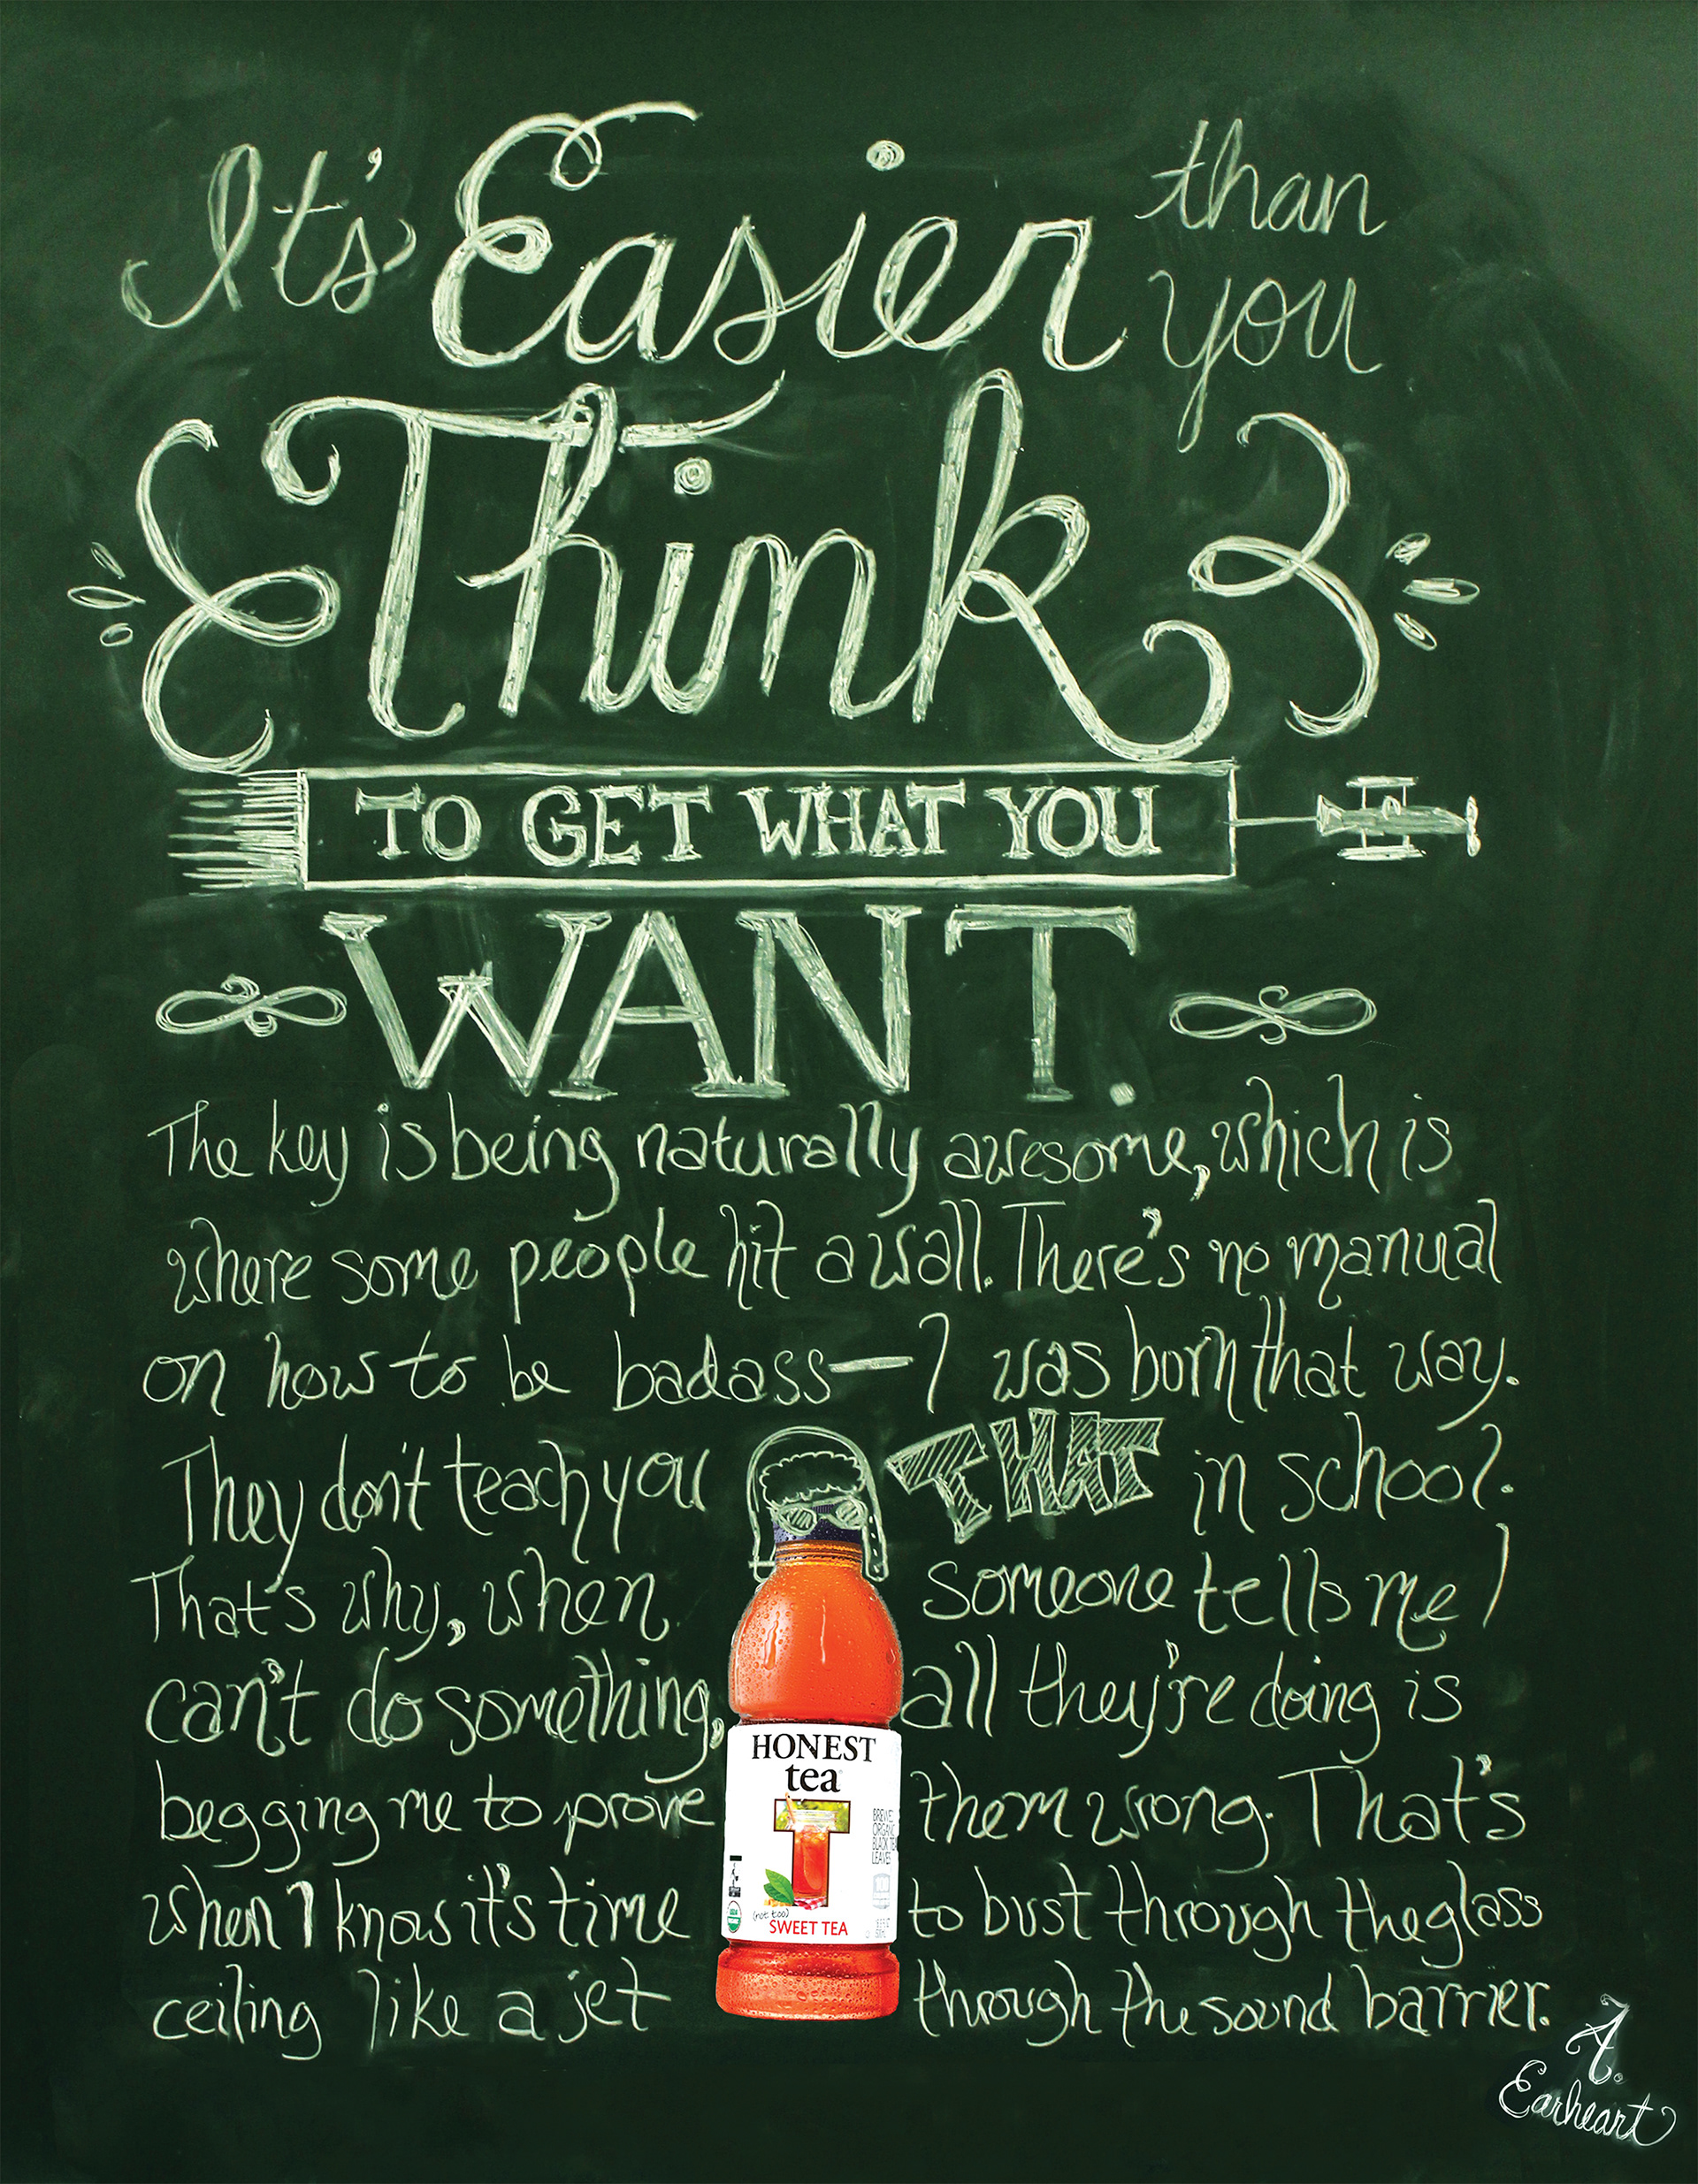 It's Easier than
you
Think
TO GET WHAT YOU
WANT.
The key is being naturally awesome, which is
where some people hit a wall. There's no manual
on how to be badass—I was born that way.
They don't teach you THAT in school.
That's why, when someone tells me I
can't do something, all they're doing is
begging me to prove them wrong. That's
when I know it's time to bust through the glass
ceiling like a jet through the sound barrier.
HONEST
tea
T
BREWED
ORGANIC
BLACK TEA
LEAVES
(not too)
SWEET TEA
A.
Earheart